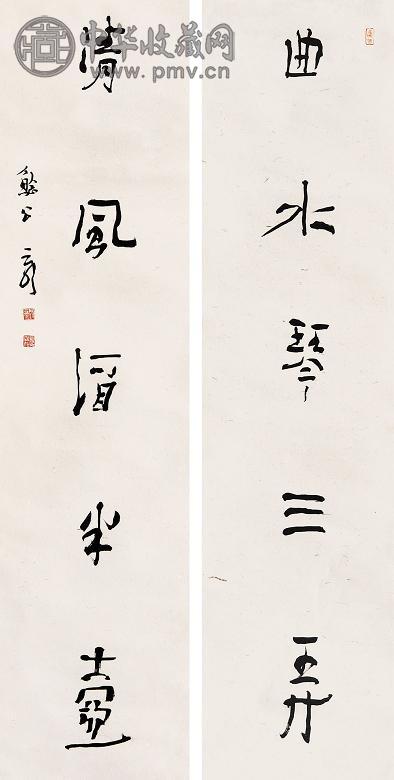 曲水琴三弄
清風酒半壺
中华收藏网
www.pmv.cn